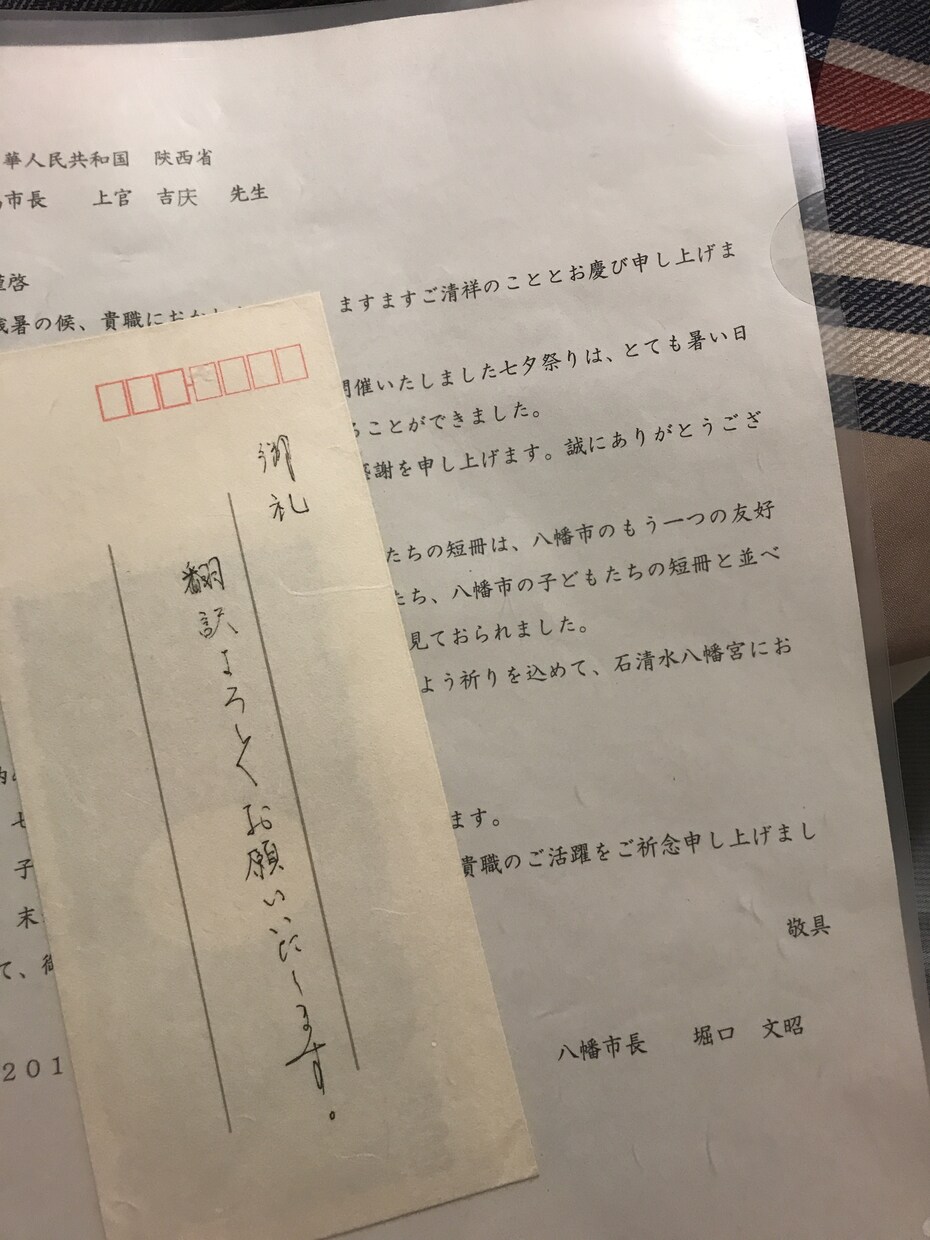 華人民共和国 陕西省
市長 上官 吉庆 先生
啓
暑の候、貴職におかれ
ますますご清祥のこととお慶び申し上げま
開催いたしました七夕祭りは、とても暑い日
ることができました。
感謝を申し上げます。誠にありがとうござ
たちの短冊は、八幡市のもう一つの友好
たち、八幡市の子どもたちの短冊と並べ
見ておられました。
よう祈りを込めて、石清水八幡宮にお
ます。
子
貴職のご活躍をご祈念申し上げまし
末
て、
敬具
201
八幡市長 堀口 文昭
御礼
翻訳よろしくお願いいたします。